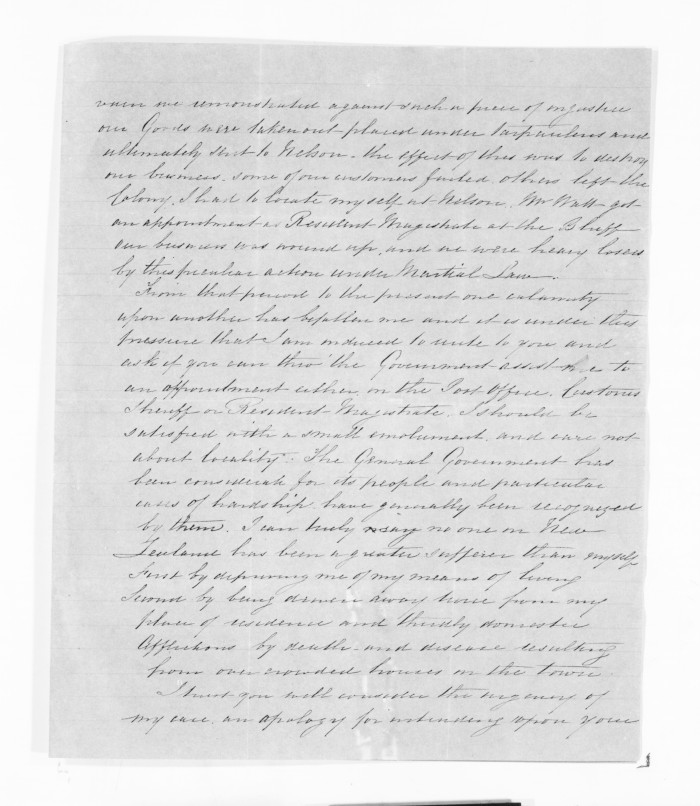 vain we remonstrated against such a piece of injustice
our Goods were taken out placed under tarpaulins and
ultimately sent to Nelson. the effect of this was to destroy
our business. some of our customers failed. others left the
Colony. I had to locate myself at Nelson. Mr Watt got
an appointment as Resident Magistrate at the Bluff
our business was wound up. and we were heavy losers
by this peculiar action under Martial Law.
From that period to the present one calamity
upon another has befallen me and it is under this
pressure that I am induced to write to you and
ask if you can thro' the Government assist me to
an appointment either in the Post Office. Customs
Sheriff or Resident Magistrate. I should be
satisfied with a small emolument. and care not
about locality. The General Government has
been considerate for its people and particular
cases of hardship have generally been recognized
by them. I can truly say no one in New
Zealand has been a greater sufferer than myself
First by depriving me of my means of living
Second by being driven away from my
place of residence and thirdly domestic
afflictions by death and disease resulting
from over crowded houses in the town.
I trust you will consider the urgency of
my case. an apology for intruding upon your